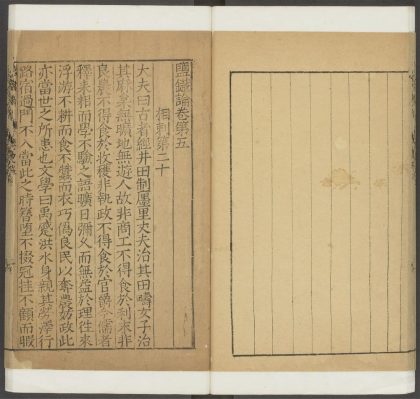 鹽鐵論卷第五
相刺第二十
大夫曰古者經井田制廛里丈夫治其田疇女子治
其麻枲無曠地無遊人故非商工不得食於利末非
良農不得食於收穫非執政不得食於官爵今儒者
釋耒耜而學不驗之語曠日彌久而無益於理往來
浮游不耕而食不蠶而衣巧偽良民以奪農妨政此
亦當世之所患也文學曰禹慼洪水身親其勞澤行
路宿過門不入當此之時簪墮不掇冠挂不顧而暇